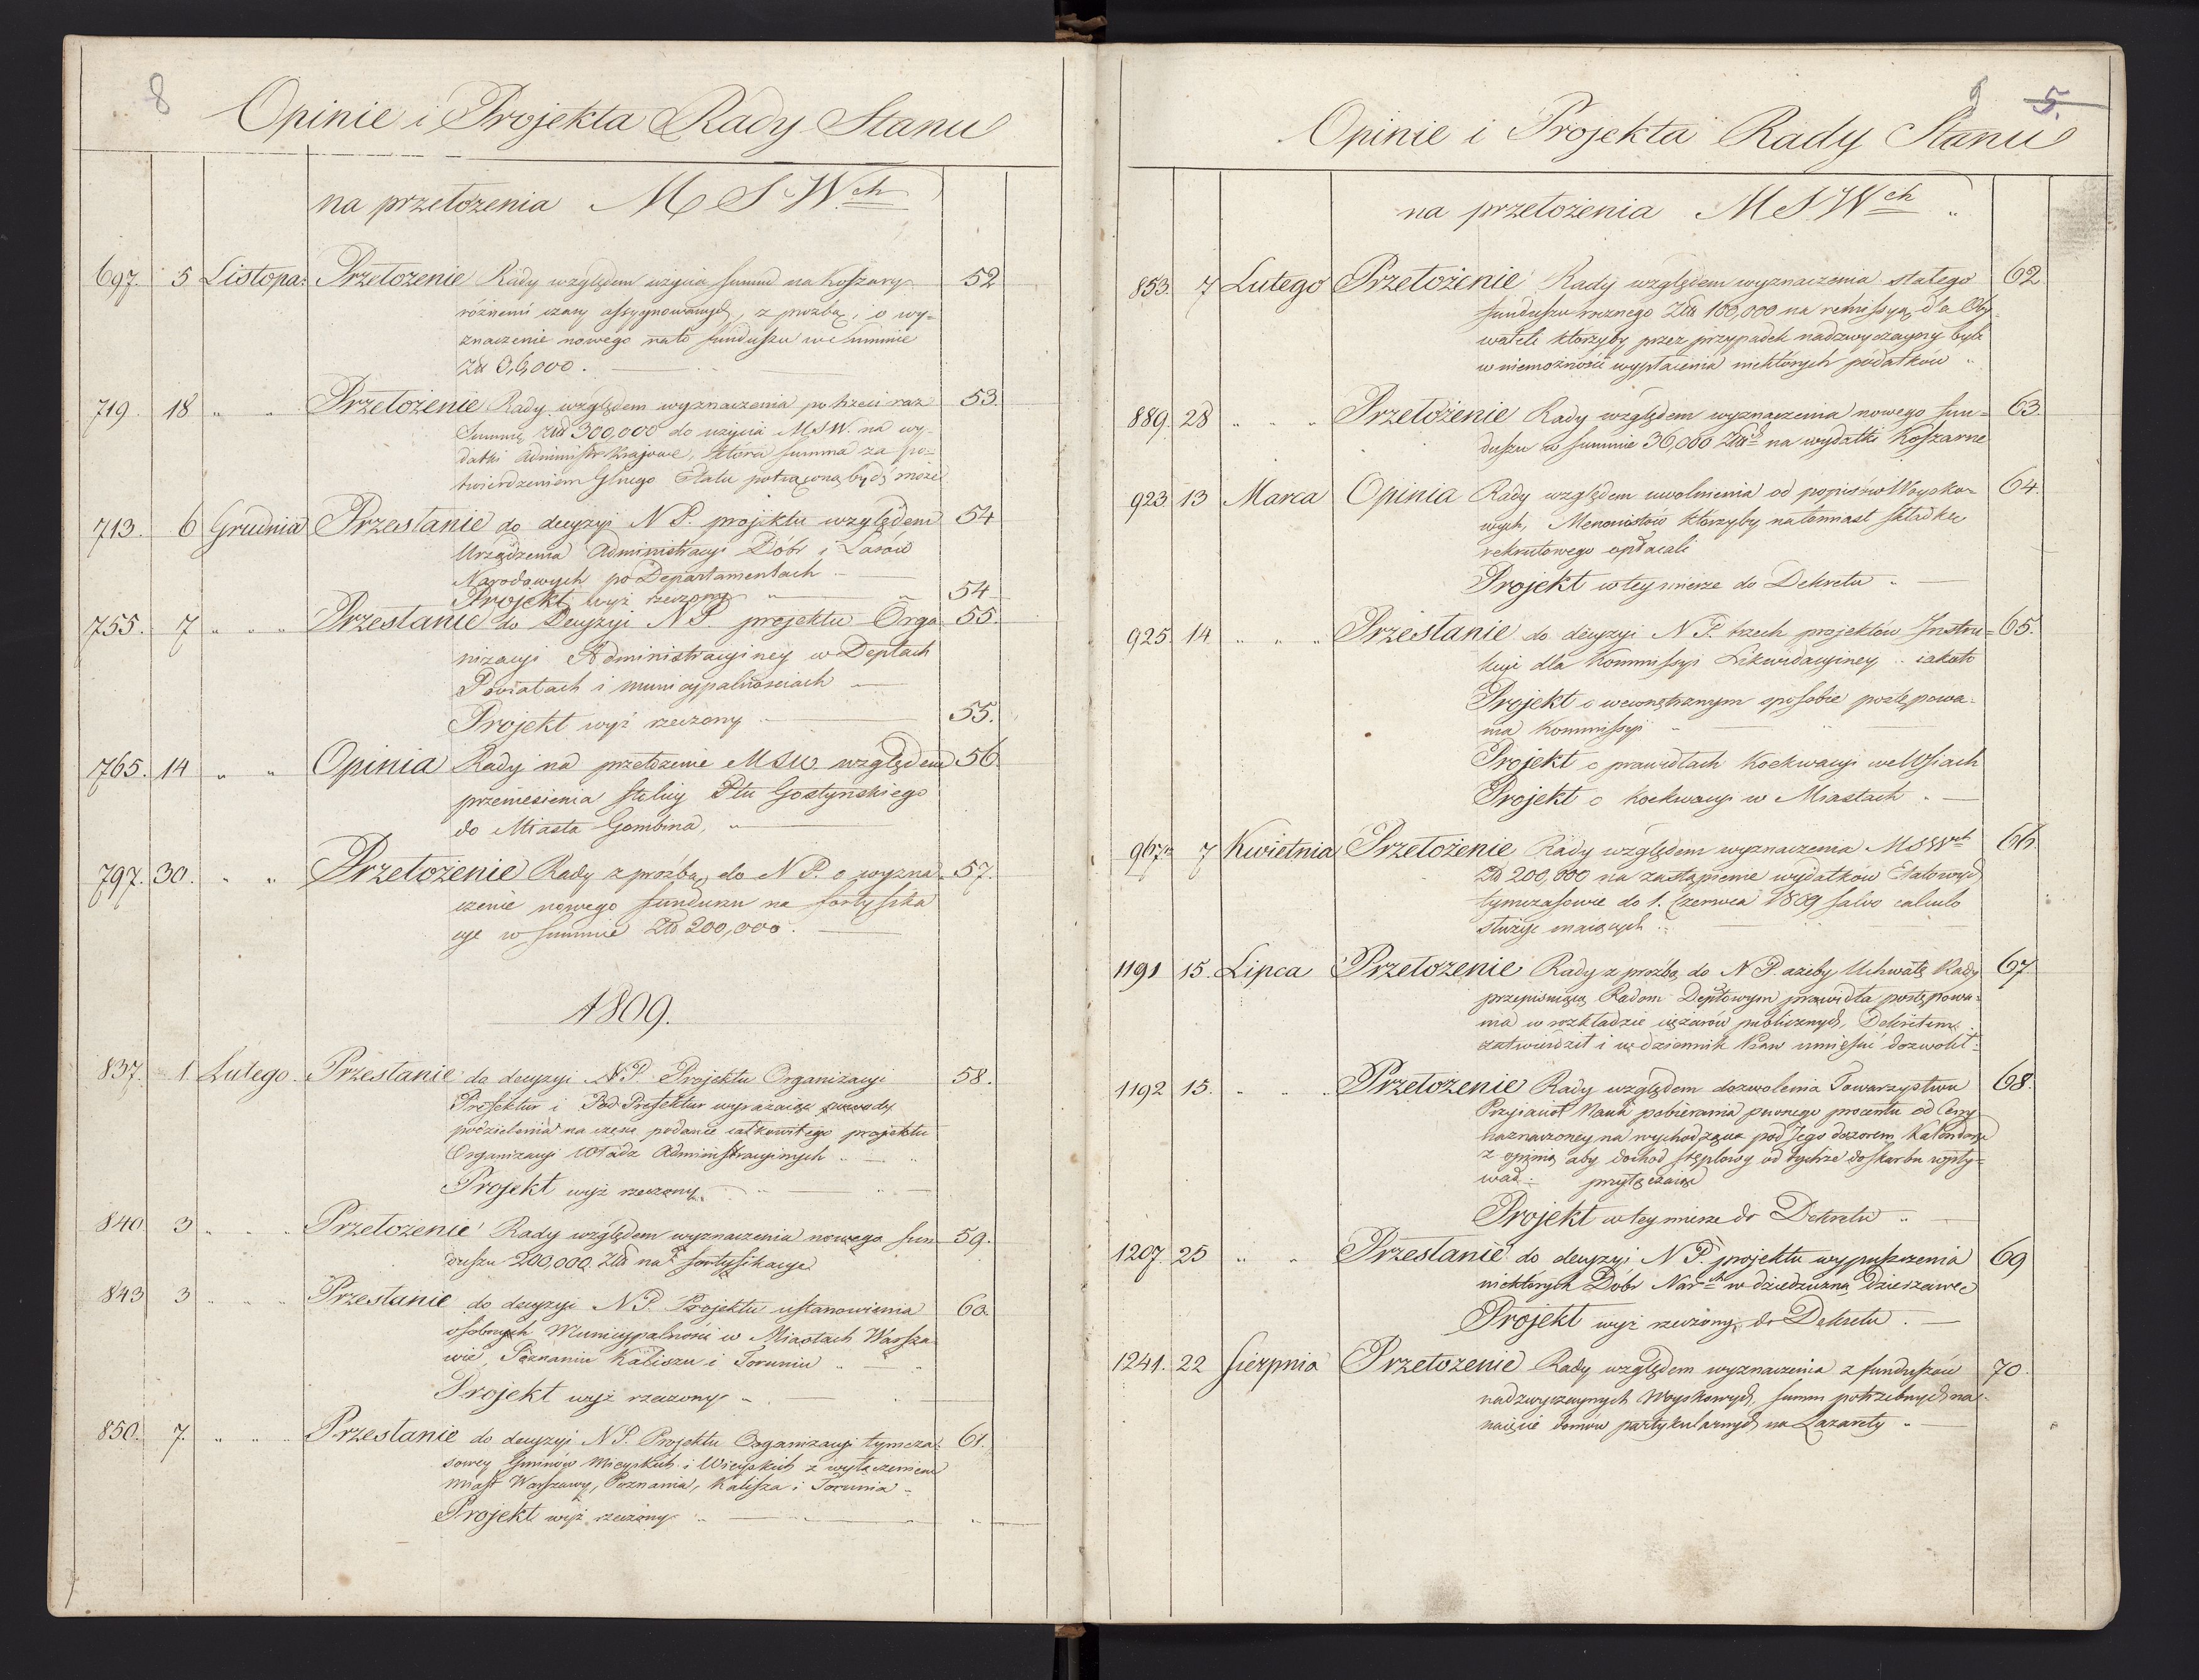 8
Opinie i Projekta Rady Stanu
na przełożenia M S Wch
697. 5 Listopa: Przełożenie Rady względem użycia summ na koszary 52
różnemi czasy assygnowanych, z prozbą, o wy=
znaczenie nowego na to funduszu we summie
Złł 36,000.
719. 18 " " Przełożenie Rady względem wyznaczenia po trzeci raz 53.
Summę Złł 300,000 do użycia MSW. na wy-
datki Administr Krajowe, która summa za po=
twierdzeniem Głnego Etatu potrąconą bydź może
713. 6 Grudnia Przesłanie do decyzyi N P. projektu względem 54
Urządzenia Administracyi Dóbr i Lasów
Narodowych po Departamentach
Projekt wyż rzeczony " 54
755. 7 " " " Przesłanie do Decyzyi N P projektu Orga= 55.
nizacyi Administracyiney w Deptach
Powiatach i municypalnościach
Projekt wyż rzeczony 55.
765. 14 " " Opinia Rady na przełożenie MSW. względem 56.
przeniesienia stolicy Ptu Gostyńskiego
do Miasta Gombina, "
797. 30. " " Przełożenie Rady z prozbą, do N P. o wyzna= 57.
czenie nowego funduszu na fortyfika
cye w summie Złł 200,000.
1809.
837. 1 Lutego Przesłanie do decyzyi N P Projektu Organizacyi 58.
Prefektur i Pod-Prefektur wyrażaiąc powody
podzielenia na częsci podanie całkowitego projektu
Organizacyi Władz Administracyinych
Projekt wyż rzeczony
840. 3 " " " Przełożenie Rady względem wyznaczenia nowego fun= 59.
duszu 200,000 Złł na fortyfikacye
843 3 " " " Przesłanie do decyzyi N P. Projektu ustanowienia 60.
osobnych Municypalności w Miastach Warsza=
wie, Poznaniu Kaliszu i Toruniu "
Projekt wyż rzeczony "
850. 7. " " " Przesłanie do decyzyi N P. Projektu Organizacyi tymcza= 61.
sowey Gminów Mieyskich i Wieyskich z wyłączeniem
miast Warszawy, Poznania, Kalisza i Torunia
Projekt wyż rzeczony "
9 5.
Opinie i Projekta Rady Stanu
na przełożenia M S W ch "
853. 7 Lutego Przełożenie Rady względem wyznaczenia stałego 62
funduszu rocznego Złł 100,000 na remissyą dla Oby
wateli ktorzyby przez przypadek nadzwyczayny byli
w niemożności wypłacenia niektórych podatków "
889. 28 " " " Przełożenie Rady względem wyznaczenia nowego fun= 63.
duszu w summie 36,000 Złł na wydatki Koszarne
923 13 Marca Opinia Rady względem uwolnienia od popisów Woysko= 64.
wych, Menonistów ktorzyby natomiast składkę
rekrutowego opłacali
Projekt w tey mierze do Dekretu "
925. 14 " " " Przesłanie do decyzyi N P. trzech projektów Instru= 65.
kcyi dla Kommissyi Likwidacyiney " iakoto
Projekt o wewnętrznym sposobie postępowa=
nia Kommissyi
Projekt o prawidłach Koekwacyi we Wsiach
Projekt o Koekwacyi w Miastach "
967. 7 Kwietnia Przełożenie Rady względem wyznaczenia MSWch 66.
Złł 200,000 na zastąpienie wydatków Etatowych
tymczasowie do 1. Czerwca 1809 salvo calculo
służyć maiących
1191 15. Lipca Przełożenie Rady z prozbą do N P. ażeby Uchwałę Rady 67.
przepisuiącą Radom Deptowym prawidła postępowa=
nia w rozkładzie ciężarów publicznych, Dekretem
zatwierdził i w dziennik Praw umieścić dozwolił
1192 15. " " " Przełożenie Rady względem dozwolenia Towarzystwu 68.
Przyiaciół Nauk pobierania pewnego procentu od Ceny
naznaczoney na wychodzące pod Jego dozorem Kalendarze
z opinią aby dochod stęplowy od tychże do skarbu wpły=
wał: przyłączaiąc
Projekt w tey mierze do Dekretu "
1207. 25 " " Przesłanie do decyzyi N P. projektu wypuszczenia 69
niektórych Dóbr Nar:ch w dziedziczną dzierżawę
Projekt wyż rzeczony do Dekretu.
1241. 22 Sierpnia Przełożenie Rady względem wyznaczenia z funduszów 70.
nadzwyczaynych Woyskowych, summ potrzebnych na
naięcie domów partykularnych na Lazarety "